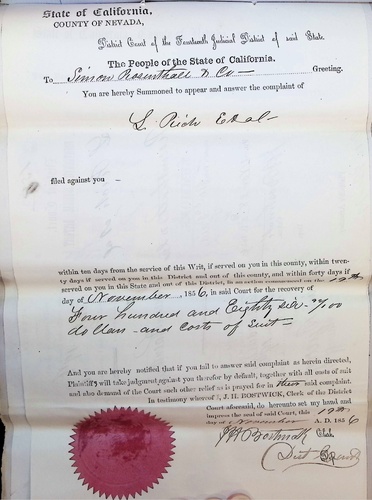 State of California.
COUNTY OF NEVADA,
District Court of the Fourteenth Judicial District of said State.
The People of the State of California.
To Simon Rosenthall & Co — Greeting.
You are hereby Summoned to appear and answer the complaint of
L. Rich Et al
filed against you
within ten days from the service of this Writ, if served on you in this county, within twen-
ty days if served on you in this District and out of this county, and within forty days if
served on you in this State and out of this District, in an action commenced on the 19th
day of November 1856, in said Court for the recovery of
Four hundred and Eighty six 90/100
dollars and Costs of Suit
And you are hereby notified that if you fail to answer said complaint as herein directed,
Plaintiffs will take judgment against you therefor by default, together with all costs of suit
and also demand of the Court such other relief as is prayed for in their said complaint.
In testimony whereof I, J. H. BOSTWICK, Clerk of the District
Court aforesaid, do hereunto set my hand and
impress the seal of said Court, this 19th
day of November A. D. 1856
J H Bostwick Clerk.
Dist Court